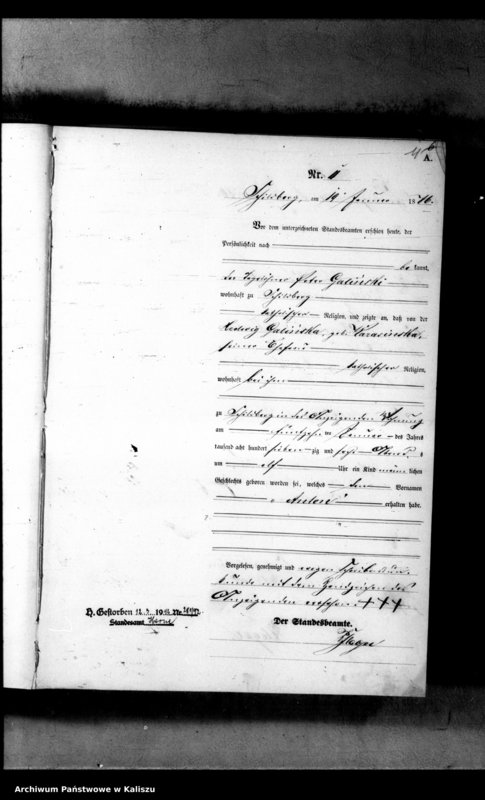 A.
Nr. 11
Schildberg, am 19 Januar 1876.
Vor dem unterzeichneten Standesbeamten erschien heute, der
Persönlichkeit nach
be kannt,
der Tagelöhner Peter Galinski
wohnhaft zu Schildberg
katholischer Religion, und zeigte an, daß von der
Hedwig Galinska, geb.
seiner Ehefrau
katholischer Religion,
wohnhaft bei ihm
zu Schildberg in des Anzeigenden Wohnung
am fünfzehnten Januar des Jahres
tausend acht hundert sieben zig und sechs
um elf Uhr ein Kind männ lichen
Geschlechts geboren worden sei, welches den Vornamen
Anton
erhalten habe.
Vorgelesen, genehmigt und wegen Schreibensun-
kunde mit dem Handzeichen des
Anzeigenden versehen +++
H. Gestorben 19 Nr.
Standesamt Herne
Der Standesbeamte.
Archiwum Państwowe w Kaliszu